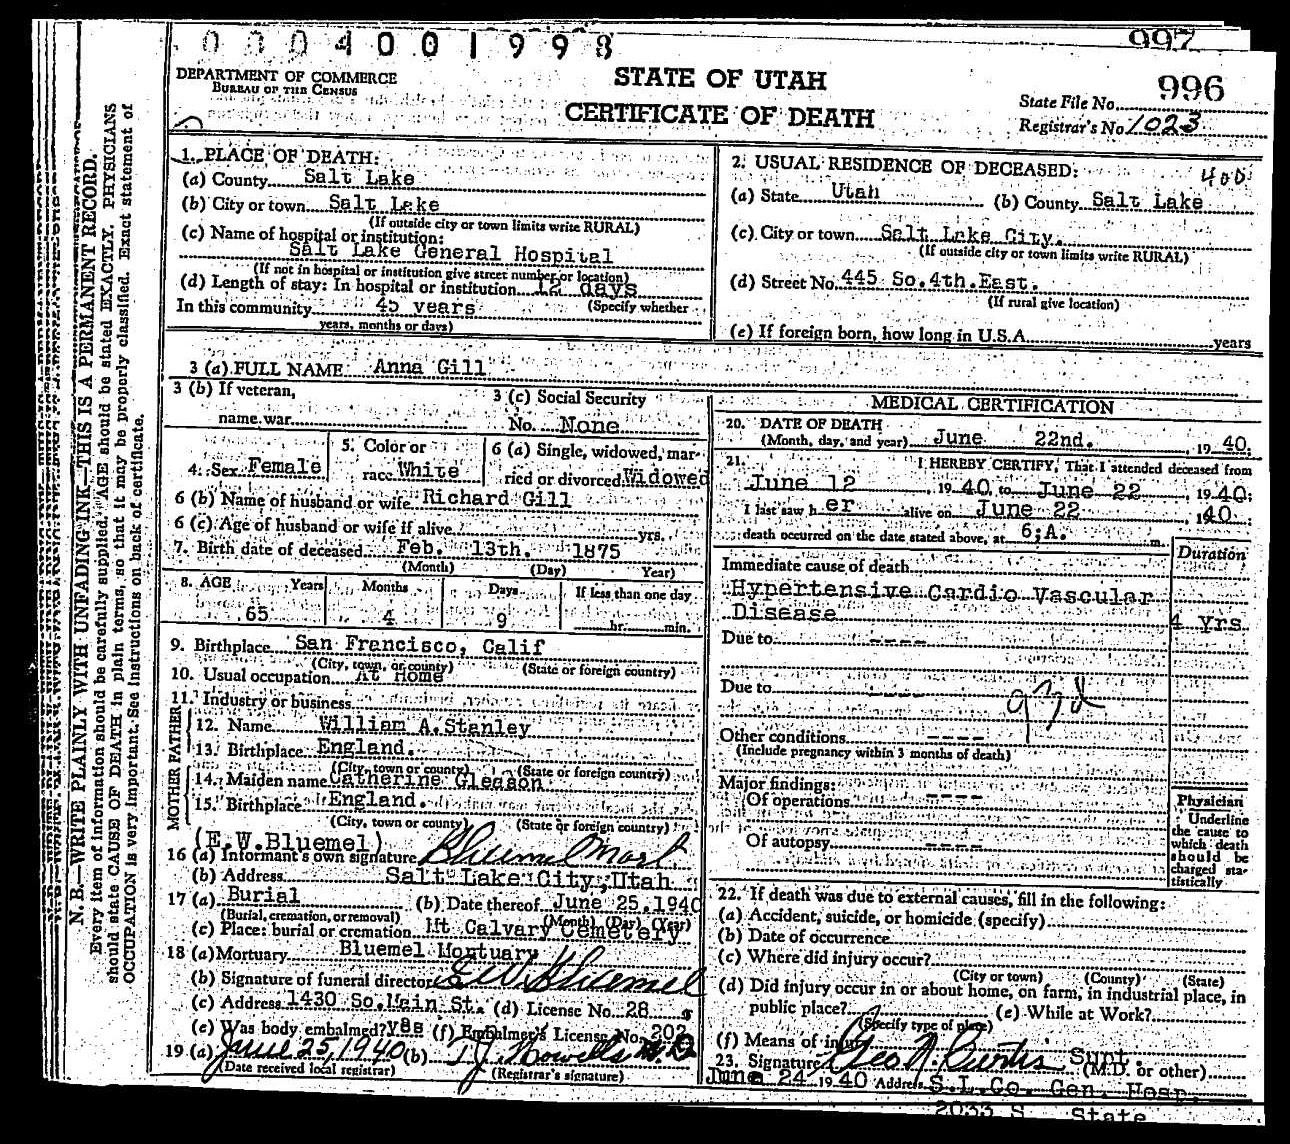 0004001998
997
DEPARTMENT OF COMMERCE
BUREAU OF THE CENSUS
STATE OF UTAH
CERTIFICATE OF DEATH
996
State File No.
Registrar's No. 1023
N. B.—WRITE PLAINLY WITH UNFADING INK—THIS IS A PERMANENT RECORD.
Every item of information should be carefully supplied. AGE should be stated EXACTLY. PHYSICIANS
should state CAUSE OF DEATH in plain terms, so that it may be properly classified. Exact statement of
OCCUPATION is very important. See instructions on back of certificate.
1. PLACE OF DEATH:
(a) County Salt Lake
(b) City or town Salt Lake
(If outside city or town limits write RURAL)
(c) Name of hospital or institution:
Salt Lake General Hospital
(If not in hospital or institution give street number or location)
(d) Length of stay: In hospital or institution 12 days
(Specify whether
In this community 45 years
years, months or days)
2. USUAL RESIDENCE OF DECEASED:
400
(a) State Utah (b) County Salt Lake
(c) City or town Salt Lake City.
(If outside city or town limits write RURAL)
(d) Street No. 445 So.4th.East.
(If rural give location)
(e) If foreign born, how long in U.S.A. years
3 (a) FULL NAME Anna Gill
3 (b) If veteran,
name war
3 (c) Social Security
No. None
4. Sex Female
5. Color or
race White
6 (a) Single, widowed, mar-
ried or divorced Widowed
6 (b) Name of husband or wife Richard Gill
6 (c) Age of husband or wife if alive yrs.
7. Birth date of deceased Feb. 13th. 1875
(Month) (Day) Year)
8. AGE Years Months Days If less than one day
65 4 9 hr. min.
9. Birthplace San Francisco, Calif
(City, town, or county) (State or foreign country)
10. Usual occupation At Home
11. Industry or business
FATHER
12. Name William A.Stanley
13. Birthplace England.
(City, town or county) (State or foreign country)
MOTHER
14. Maiden name Catherine Gleason
15. Birthplace England.
(City, town or county) (State or foreign country)
(E.W.Bluemel)
16 (a) Informant's own signature Bluemel Mort
(b) Address Salt Lake City, Utah
17 (a) Burial (b) Date thereof June 25,1940
(Burial, cremation, or removal) (Month) (Day) (Year)
(c) Place: burial or cremation Mt Calvary Cemetery
18 (a) Mortuary Bluemel Mortuary
(b) Signature of funeral director E W Bluemel
(c) Address 1430 So.Main St. (d) License No. 28
(e) Was body embalmed? yes (f) Embalmer's License No. 202
19 (a) June 25, 1940 (b) T J Howells M D
(Date received local registrar) (Registrar's signature)
MEDICAL CERTIFICATION
20. DATE OF DEATH
(Month, day, and year) June 22nd. , 19 40.
21. I HEREBY CERTIFY, That I attended deceased from
June 12 , 19 40, to June 22 , 19 40;
I last saw h er alive on June 22 , 19 40 ;
death occurred on the date stated above, at 6;A. m.
Duration
Immediate cause of death
Hypertensive Cardio Vascular
Disease 4 yrs.
Due to ----
Due to ----
93d
Other conditions ----
(Include pregnancy within 3 months of death)
Major findings:
Of operations ----
Of autopsy ----
Physician
Underline
the cause to
which death
should be
charged sta-
tistically
22. If death was due to external causes, fill in the following:
(a) Accident, suicide, or homicide (specify)
(b) Date of occurrence
(c) Where did injury occur?
(City or town) (County) (State)
(d) Did injury occur in or about home, on farm, in industrial place, in
public place? (e) While at Work?
(Specify type of place)
(f) Means of injury
23. Signature Geo N. Curtis Supt.
(M.D. or other)
June 24 19 40 Address S.L.Co. Gen. Hosp.
2033 S. State